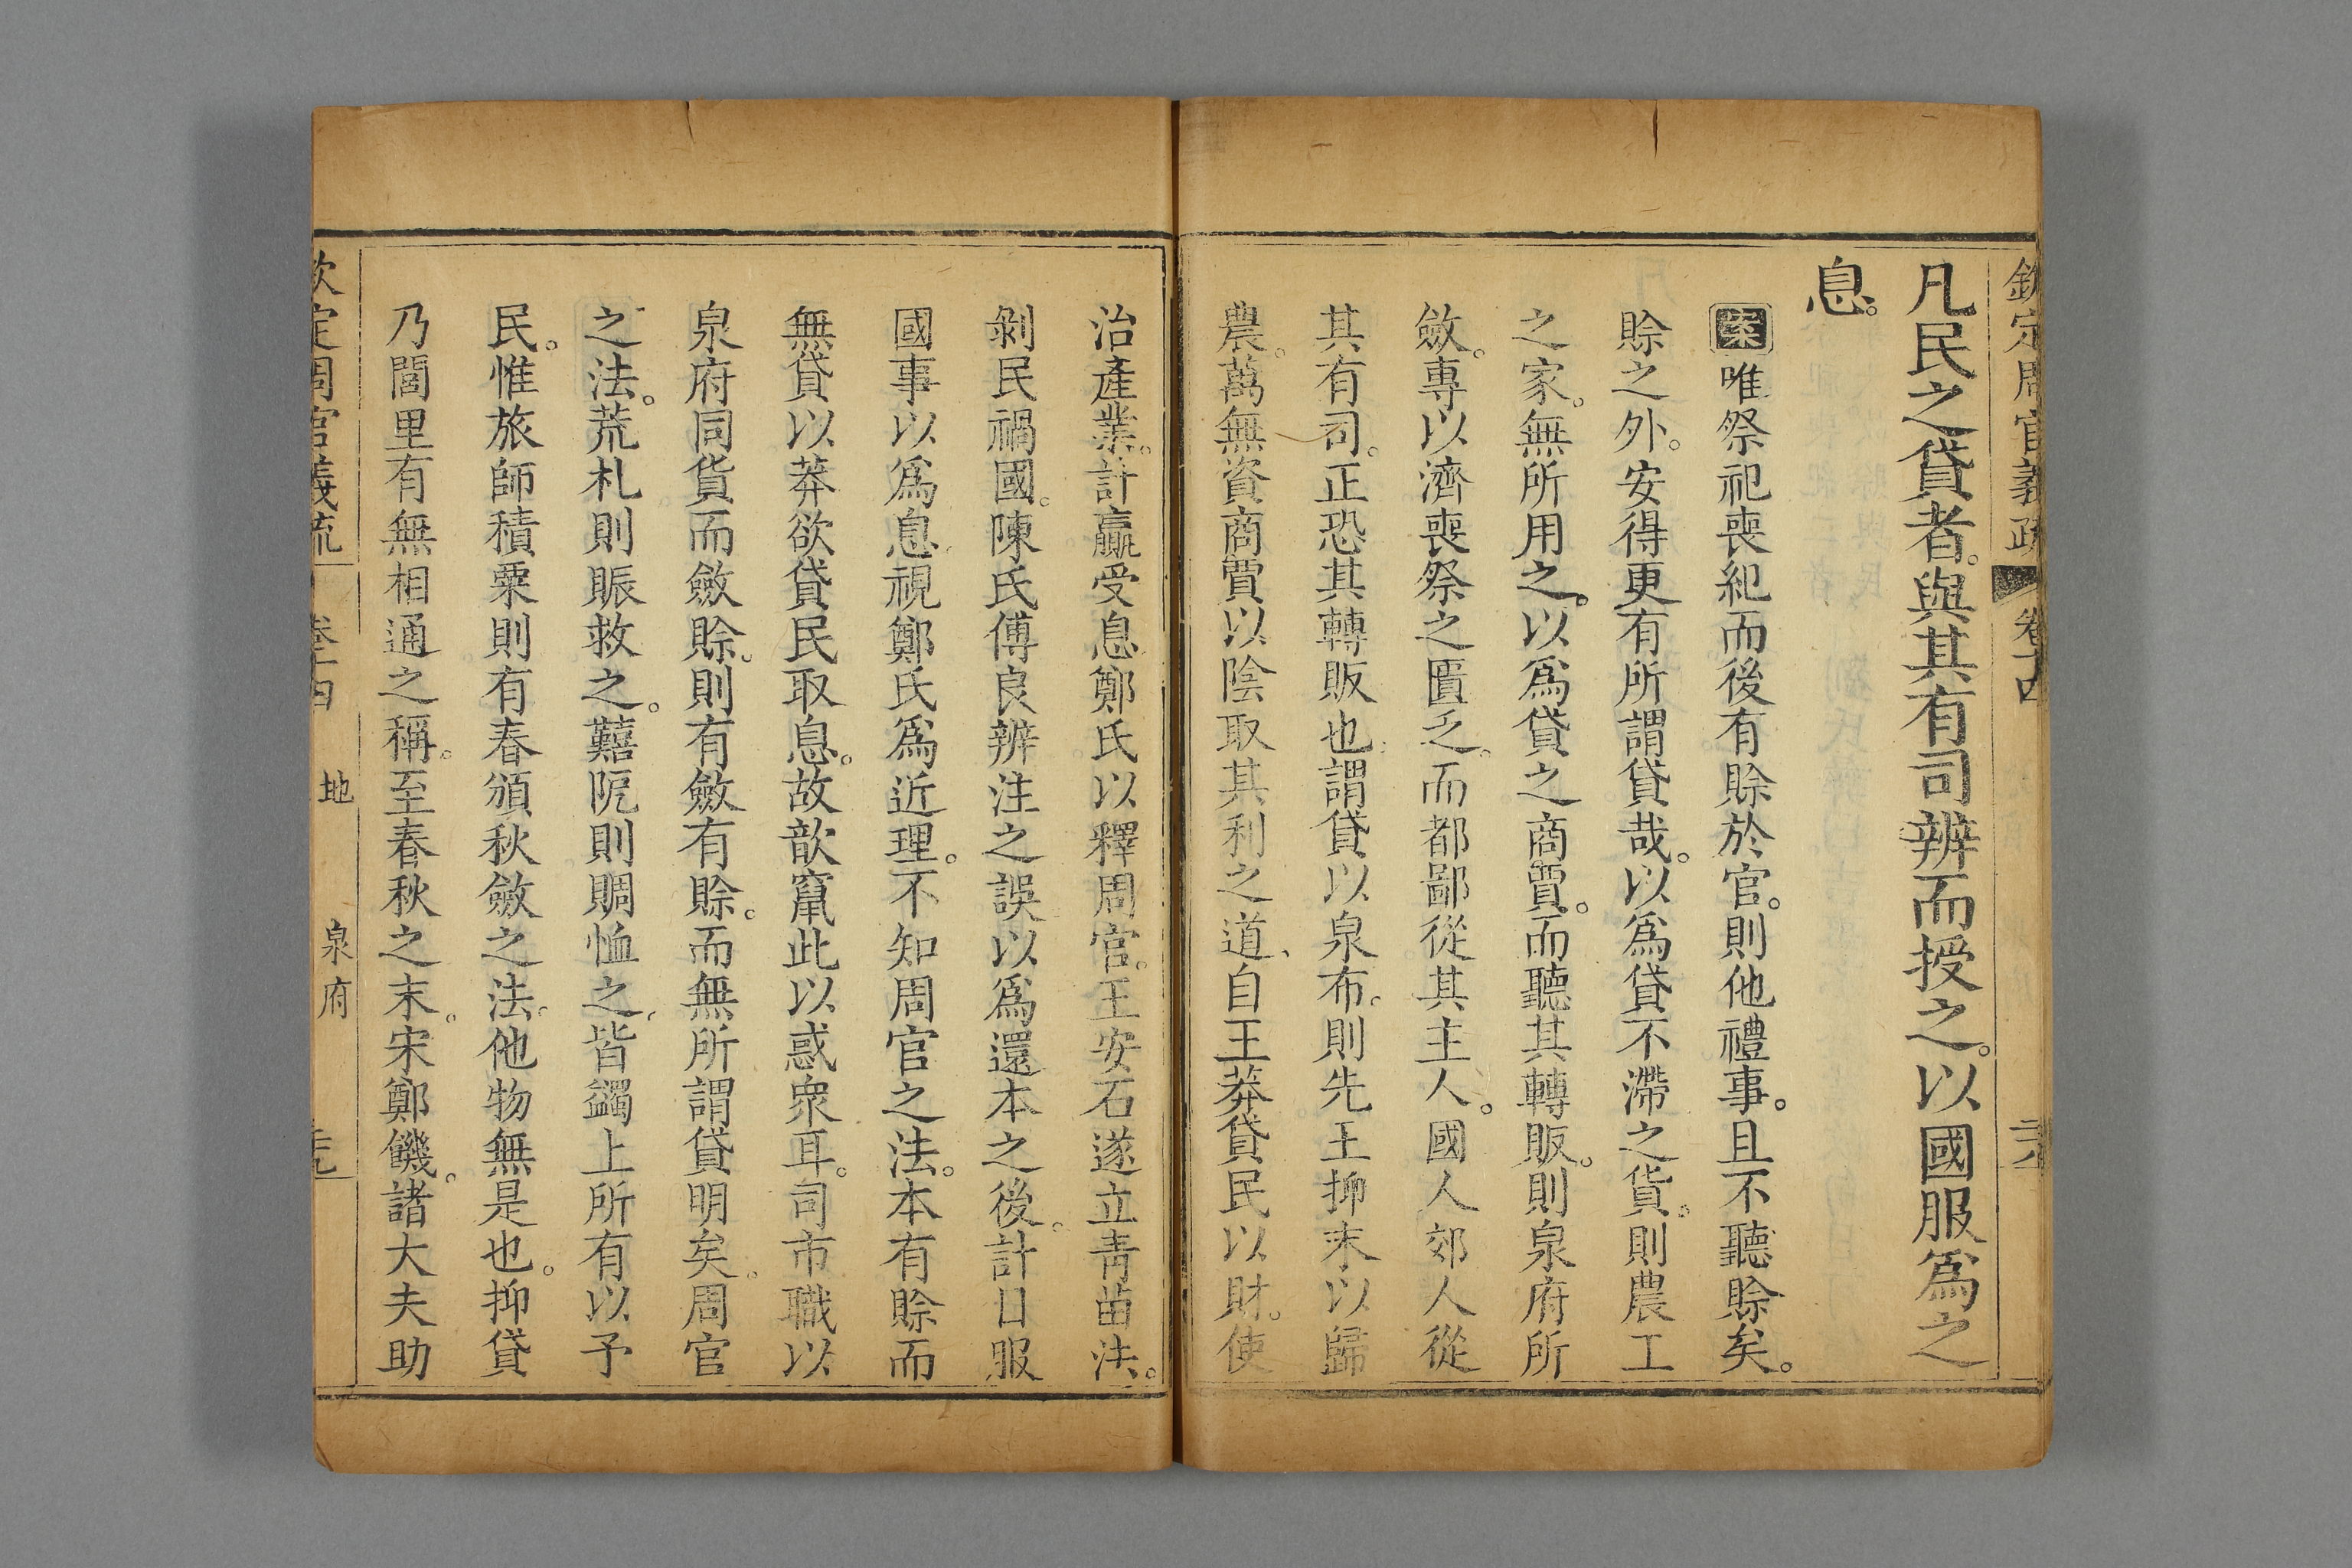 欽定周官義疏 卷十四
凡民之貸者。與其有司辨而授之。以國服爲之
息。
案唯祭祀喪紀而後有賒於官。則他禮事。且不聽賒矣。
賒之外。安得更有所謂貸哉。以爲貸不滯之貨。則農工
之家。無所用之。以爲貸之商賈。而聽其轉販。則泉府所
斂。專以濟喪祭之匱乏。而都鄙從其主人。國人郊人從
其有司。正恐其轉販也。謂貸以泉布。則先王抑末以歸
農。萬無資商賈以陰取其利之道。自王莽貸民以財。使
治產業。計贏受息鄭氏以釋周官。王安石遂立靑苗法。
剝民禍國。陳氏傅良辨注之誤以爲還本之後。計日服
國事以爲息。視鄭氏爲近理。不知周官之法。本有賒而
無貸以莽欲貸民取息。故歆竄此以惑衆耳。司市職以
泉府同貨而斂賒。則有斂有賒。而無所謂貸明矣。周官
之法。荒札則賑救之。囏阨則賙恤之。皆蠲上所有以予
民。惟旅師積粟則有春頒秋斂之法。他物無是也。抑貸
乃閭里有無相通之稱。至春秋之末。宋鄭饑。諸大夫助
欽定周官義疏 卷十四 地 泉府